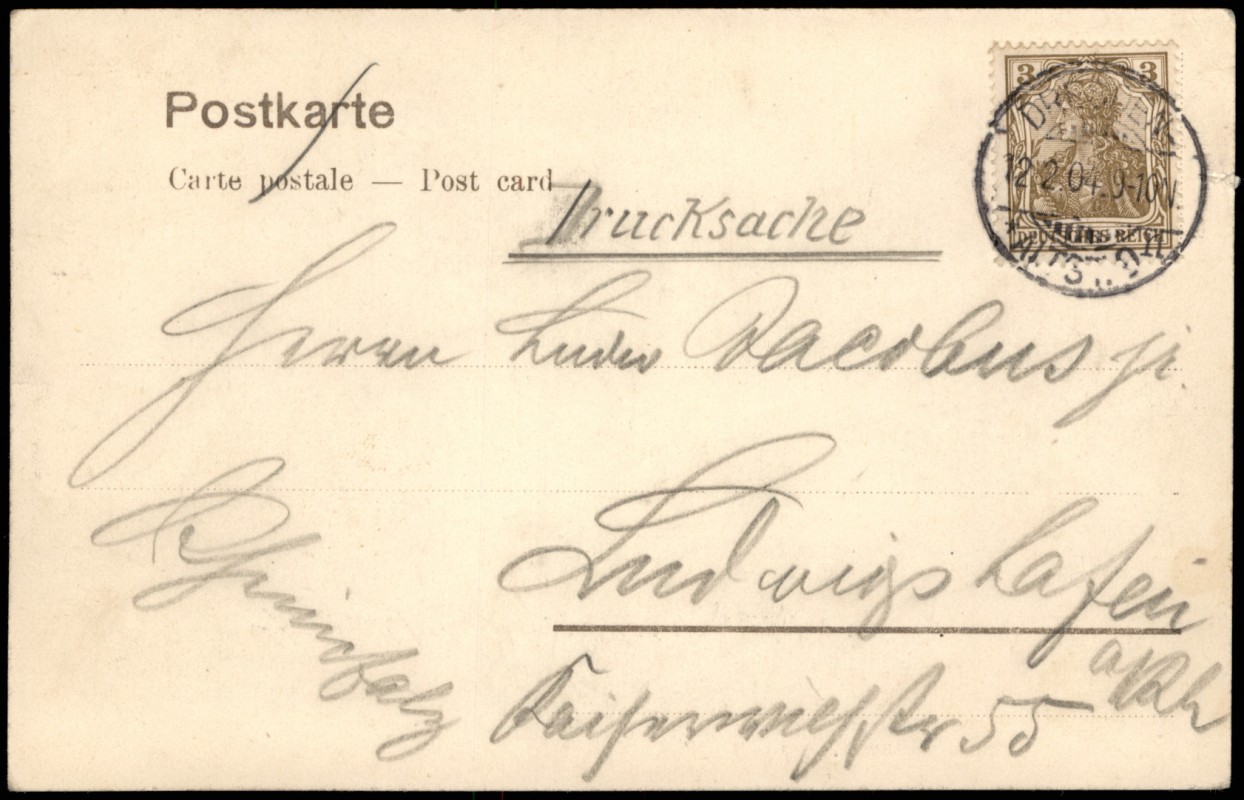 Postkarte
Carte postale — Post card
Drucksache
3 3
12.2.04.9-10V.
DEUTSCHES REICH
Herrn Jacobus jr.
Ludwigshafen
a/Rh
Rheinpfalz
Kaiserwilhstr 55